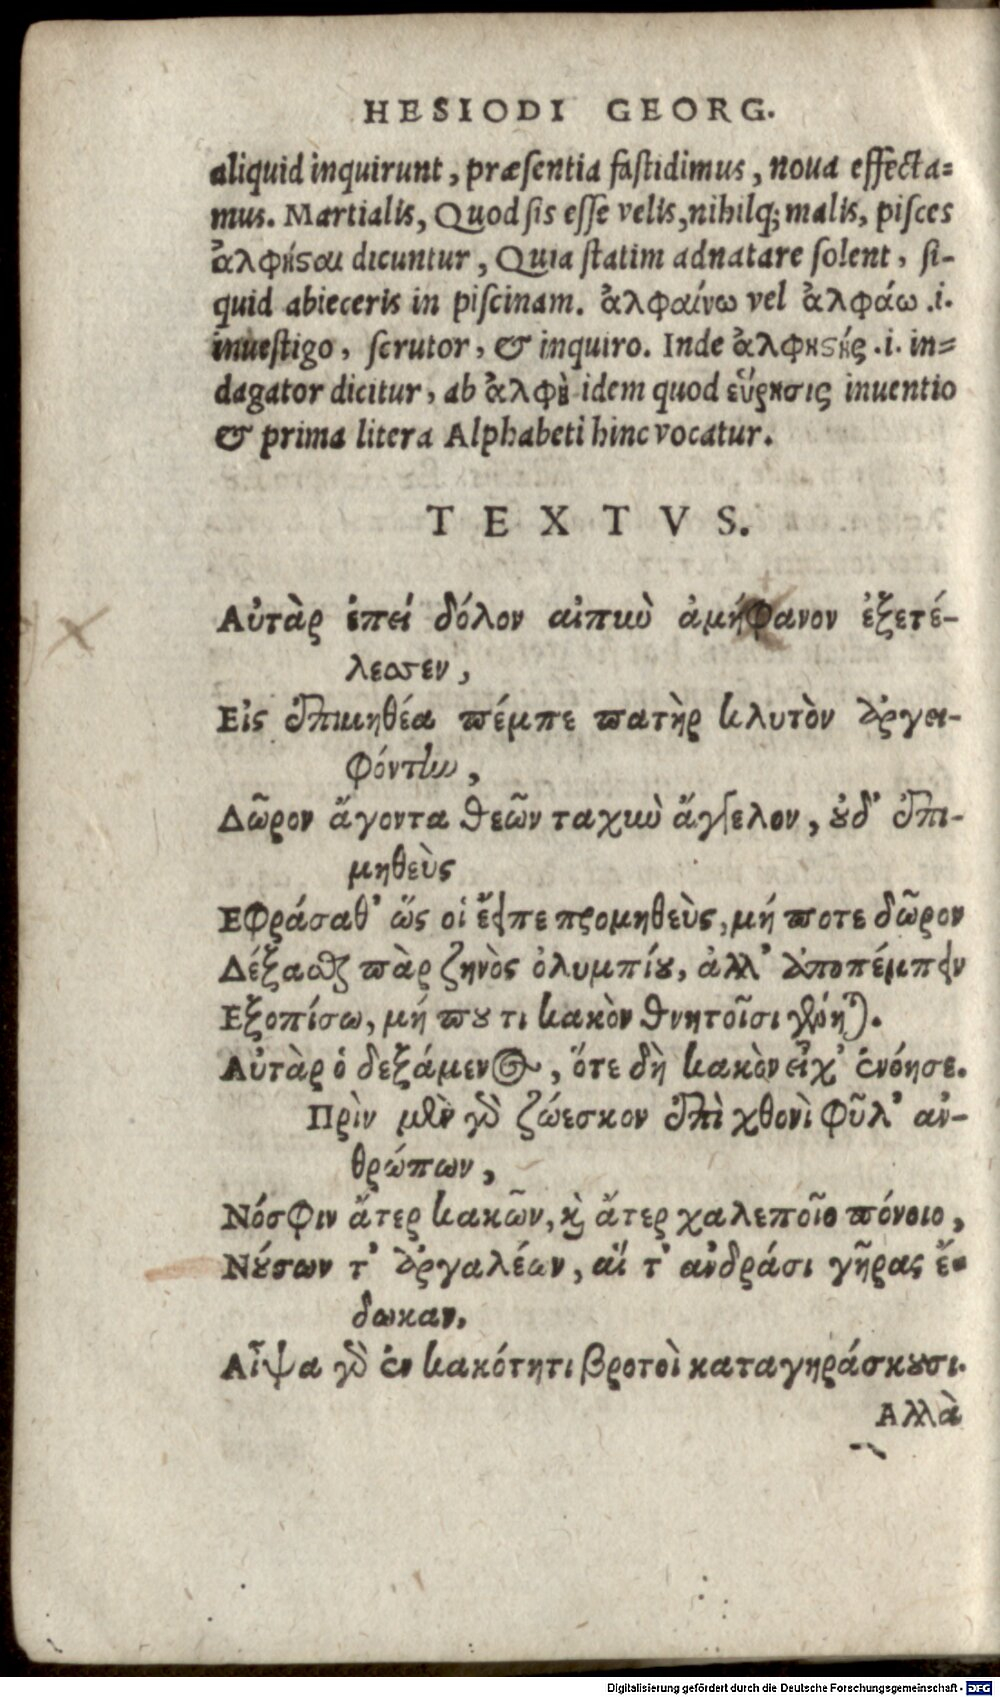 HESIODI GEORG.
aliquid inquirunt, præsentia fastidimus, noua effecta=
mus. Martialis, Quod sis esse velis, nihilq; malis, pisces
ἀλφηϛαι dicuntur, Quia statim adnatare solent, si-
quid abieceris in piscinam. ἀλφαίνω vel ἀλφάω .i.
inuestigo, scrutor, & inquiro. Inde ἀλφηϛής .i. in=
dagator dicitur, ab ἀλφὴ idem quod εὕρησις inuentio
& prima litera Alphabeti hinc vocatur.
TEXTVS.
Αὐτὰρ ἐπεί δόλον αἰπὺ ἀμήφανον ἐξετέ-
λεσσεν,
Εἰς ἐπιμηθέα πέμπε πατὴρ κλυτὸν ἀργει-
φόντην,
Δῶρον ἄγοντα θεῶν ταχὺ ἄγγελον, ȣδ' ἐπι-
μηθεὺς
Εφράσαθ' ὥς οἱ ἔειπε προμηθεὺς, μή ποτε δῶρον
Δέξασθαι πὰρ ζηνὸς ὀλυμπίȣ, ἀλλ' ἀποπέμπειν
Εξοπίσω, μή πȣ τι κακὸν θνητοῖσι γένηται.
Αὐτὰρ ὁ δεξάμενος, ὅτε δὴ κακὸν εἶχ' ἐνόησε.
Πρὶν μὲν γὰρ ζώεσκον ἐπὶ χθονὶ φῦλ' ἀν-
θρώπων,
Νόσφιν ἄτερ κακῶν, καὶ ἄτερ χαλεποῖο πόνοιο,
Νȣσων τ' ἀργαλέων, αἵ τ' ἀνδράσι γῆρας ἔ-
δωκαν.
Αἶψα γὰρ ἐν κακότητι βροτοὶ καταγηράσκȣσι.
Αλλὰ
Digitalisierung gefördert durch die Deutsche Forschungsgemeinschaft - DFG